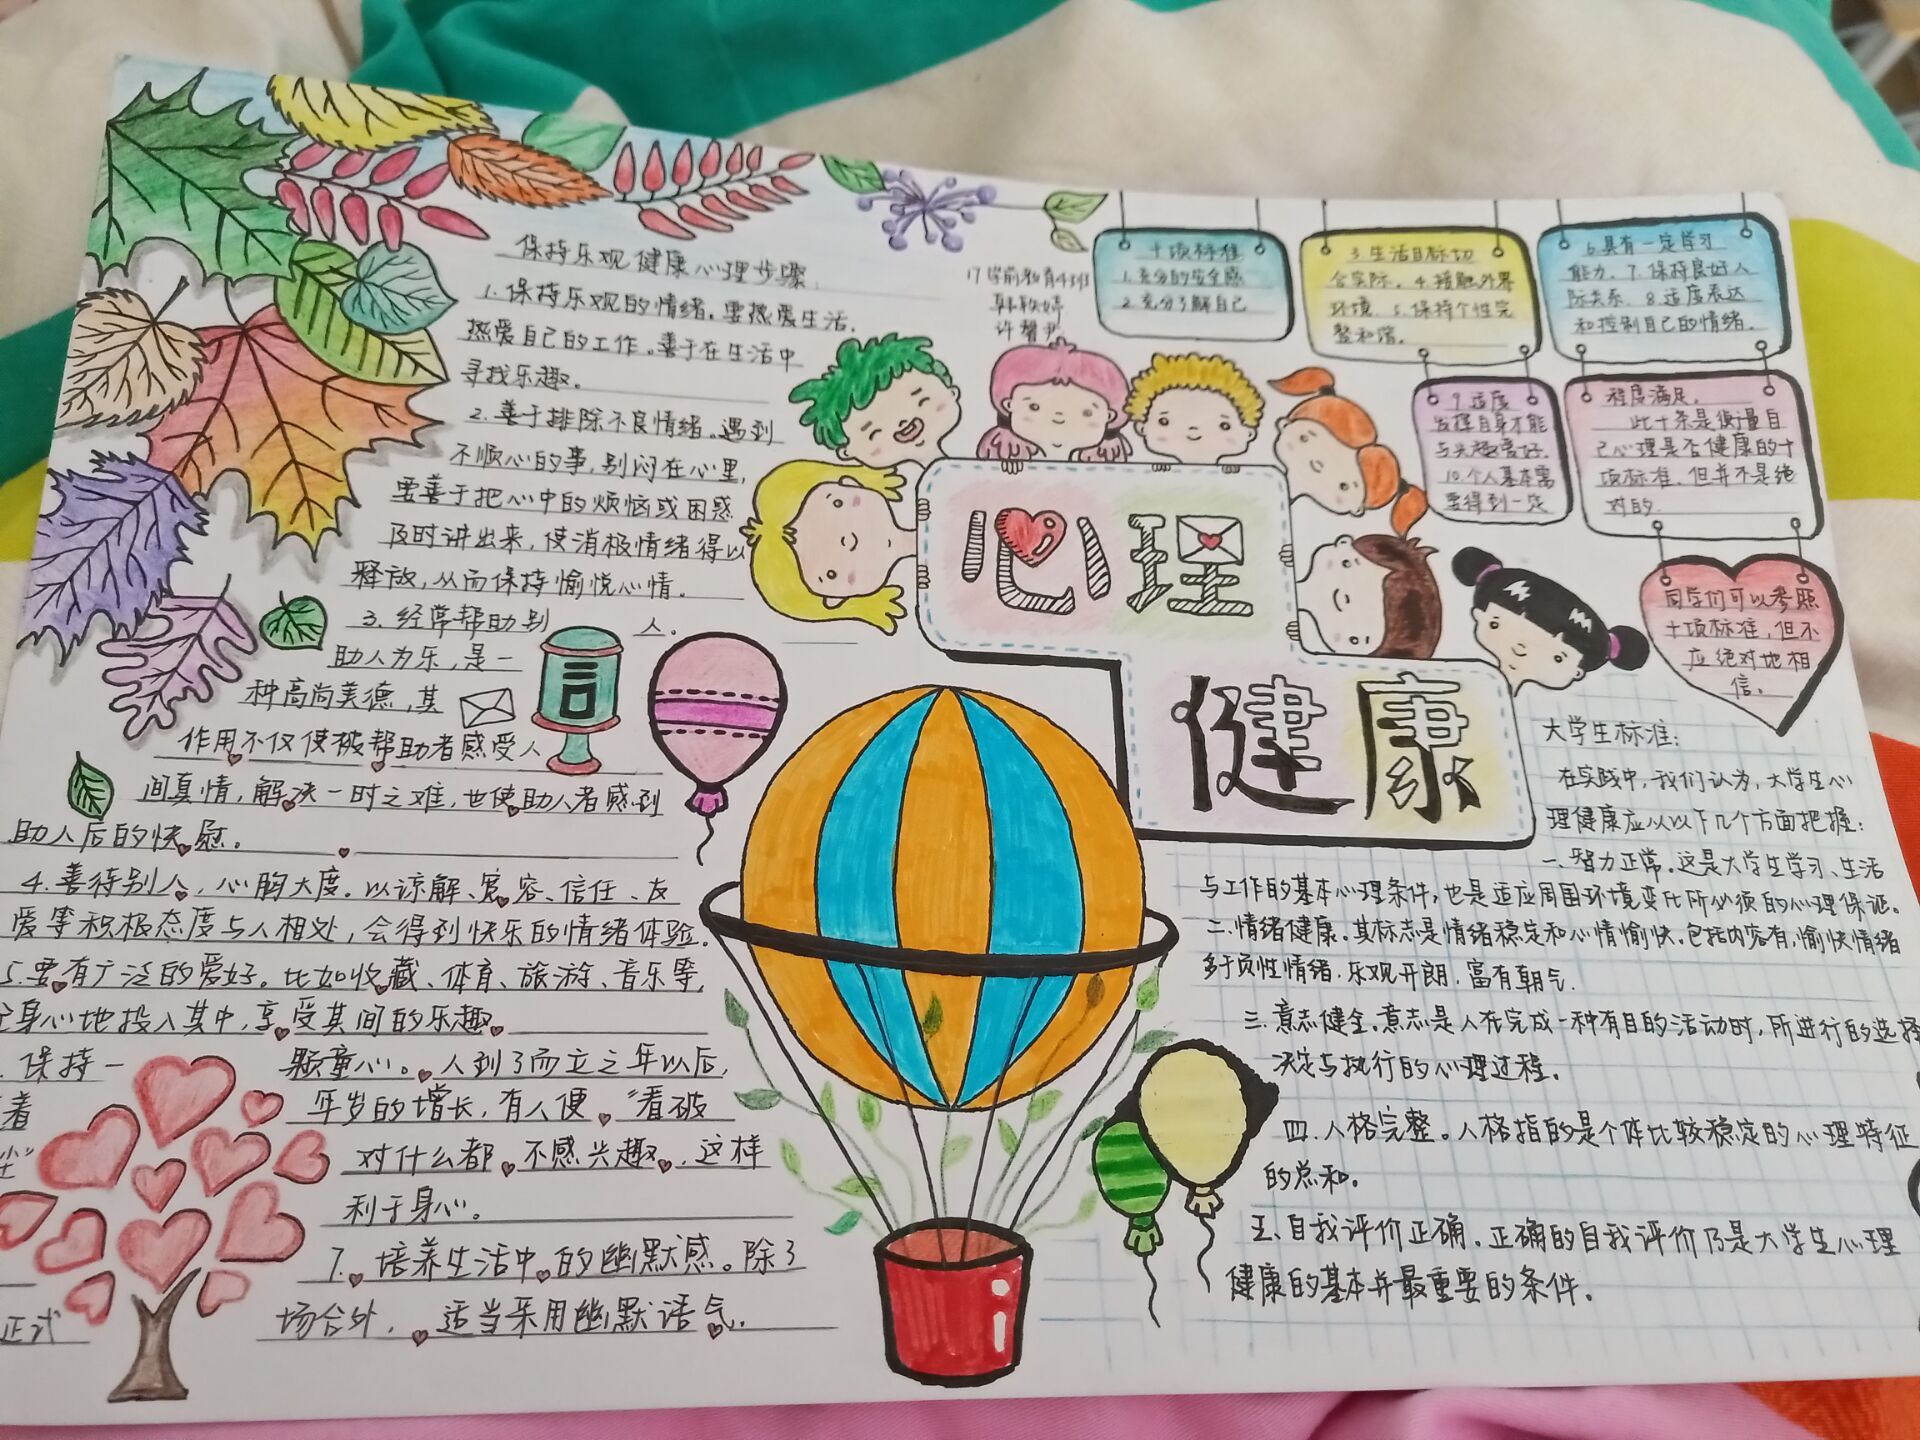 保持乐观健康心理步骤:
1.保持乐观的情绪。要热爱生活,
热爱自己的工作。善于在生活中
寻找乐趣。
2.善于排除不良情绪。遇到
不顺心的事,别闷在心里,
要善于把心中的烦恼或困惑
及时讲出来,使消极情绪得以
释放,从而保持愉悦心情。
3.经常帮助别人。
助人为乐,是一
种高尚美德,其
作用不仅使被帮助者感受人
间真情,解决一时之难,也使助人者感到
助人后的快慰。
4.善待别人,心胸大度。以谅解、宽容、信任、友
爱等积极态度与人相处,会得到快乐的情绪体验。
5.要有广泛的爱好。比如收藏、体育、旅游、音乐等,
全身心地投入其中,享受其间的乐趣。
保持一颗童心。人到了而立之年以后,
着年岁的增长,有人便“看破
尘”对什么都不感兴趣,这样
利于身心。
7.培养生活中的幽默感。除了
正式场合外,适当采用幽默语气。
17学前教育4班
许馨尹
心理
健康
十项标准
1.充分的安全感
2.充分了解自己
3.生活目标切
合实际。4.接触外界
环境、5.保持个性完
整和谐。
6.具有一定学习
能力、7.保持良好人
际关系、8.适度表达
和控制自己的情绪。
9.适度
发挥自身才能
与兴趣爱好。
10.个人基本需
要得到一定
程度满足。
此十条是衡量自
己心理是否健康的十
项标准、但并不是绝
对的
同学们可以参照
十项标准,但不
应绝对地相
信。
大学生标准:
在实践中,我们认为,大学生心
理健康应从以下几个方面把握:
一.智力正常。这是大学生学习、生活
与工作的基本心理条件,也是适应周围环境变化所必须的心理保证。
二.情绪健康。其标志是情绪稳定和心情愉快。包括内容有,愉快情绪
多于负性情绪.乐观开朗,富有朝气.
三.意志健全。意志是人在完成一种有目的活动时,所进行的选择
决定与执行的心理过程。
四.人格完整。人格指的是个体比较稳定的心理特征
的总和。
五.自我评价正确。正确的自我评价乃是大学生心理
健康的基本并最重要的条件。